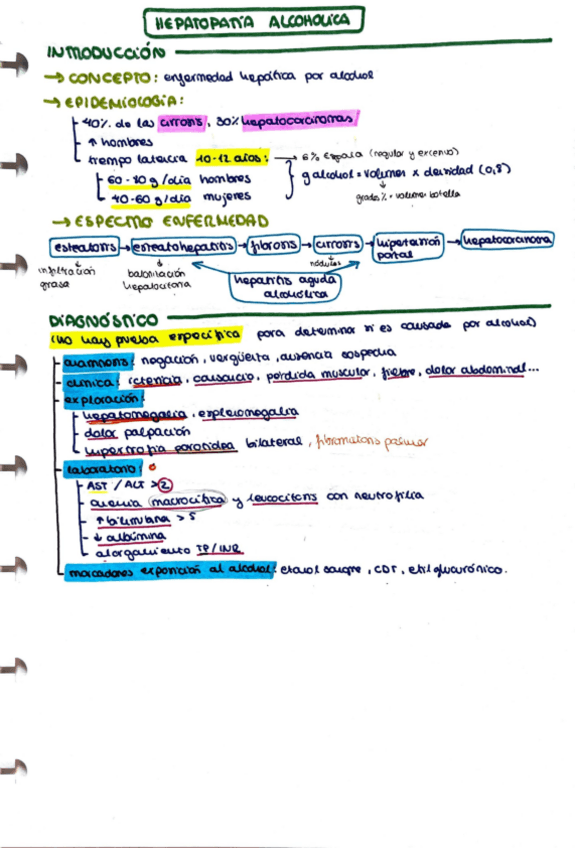 HEPATOPATÍA ALCOHOLICA
INTRODUCCIÓN
→ CONCEPTO: enfermedad hepática por alcohol
→ EPIDEMIOLOGÍA:
40% de las cirrosis, 30% hepatocarcinomas
↑ hombres
tiempo latencia 10-12 años: → 6% España (regular y excesivo)
60-80 g/día hombres
40-60 g/día mujeres
g alcohol = volumen x densidad (0,8)
grados % = volumen botella
→ ESPECTRO ENFERMEDAD
esteatosis → esteatohepatitis → fibrosis → cirrosis → hipertensión portal → hepatocarcinoma
infiltración grasa
balonización hepatocitaria
nódulos
hepatitis aguda alcohólica
DIAGNÓSTICO
(no hay prueba específica para determinar si es causada por alcohol)
anamnesis: negación, vergüenza, ausencia sospecha
clínica: ictericia, cansancio, pérdida muscular, fiebre, dolor abdominal...
exploración:
hepatomegalia, esplenomegalia
dolor palpación
hipertrofia parotídea bilateral, fibromatosis palmar
laboratorio:
AST / ALT > 2
anemia macrocítica y leucocitosis con neutrofilia
↑ bilirrubina > 5
↓ albúmina
alargamiento TP/INR
marcadores exposición al alcohol: etanol sangre, CDT, etil glucurónico.